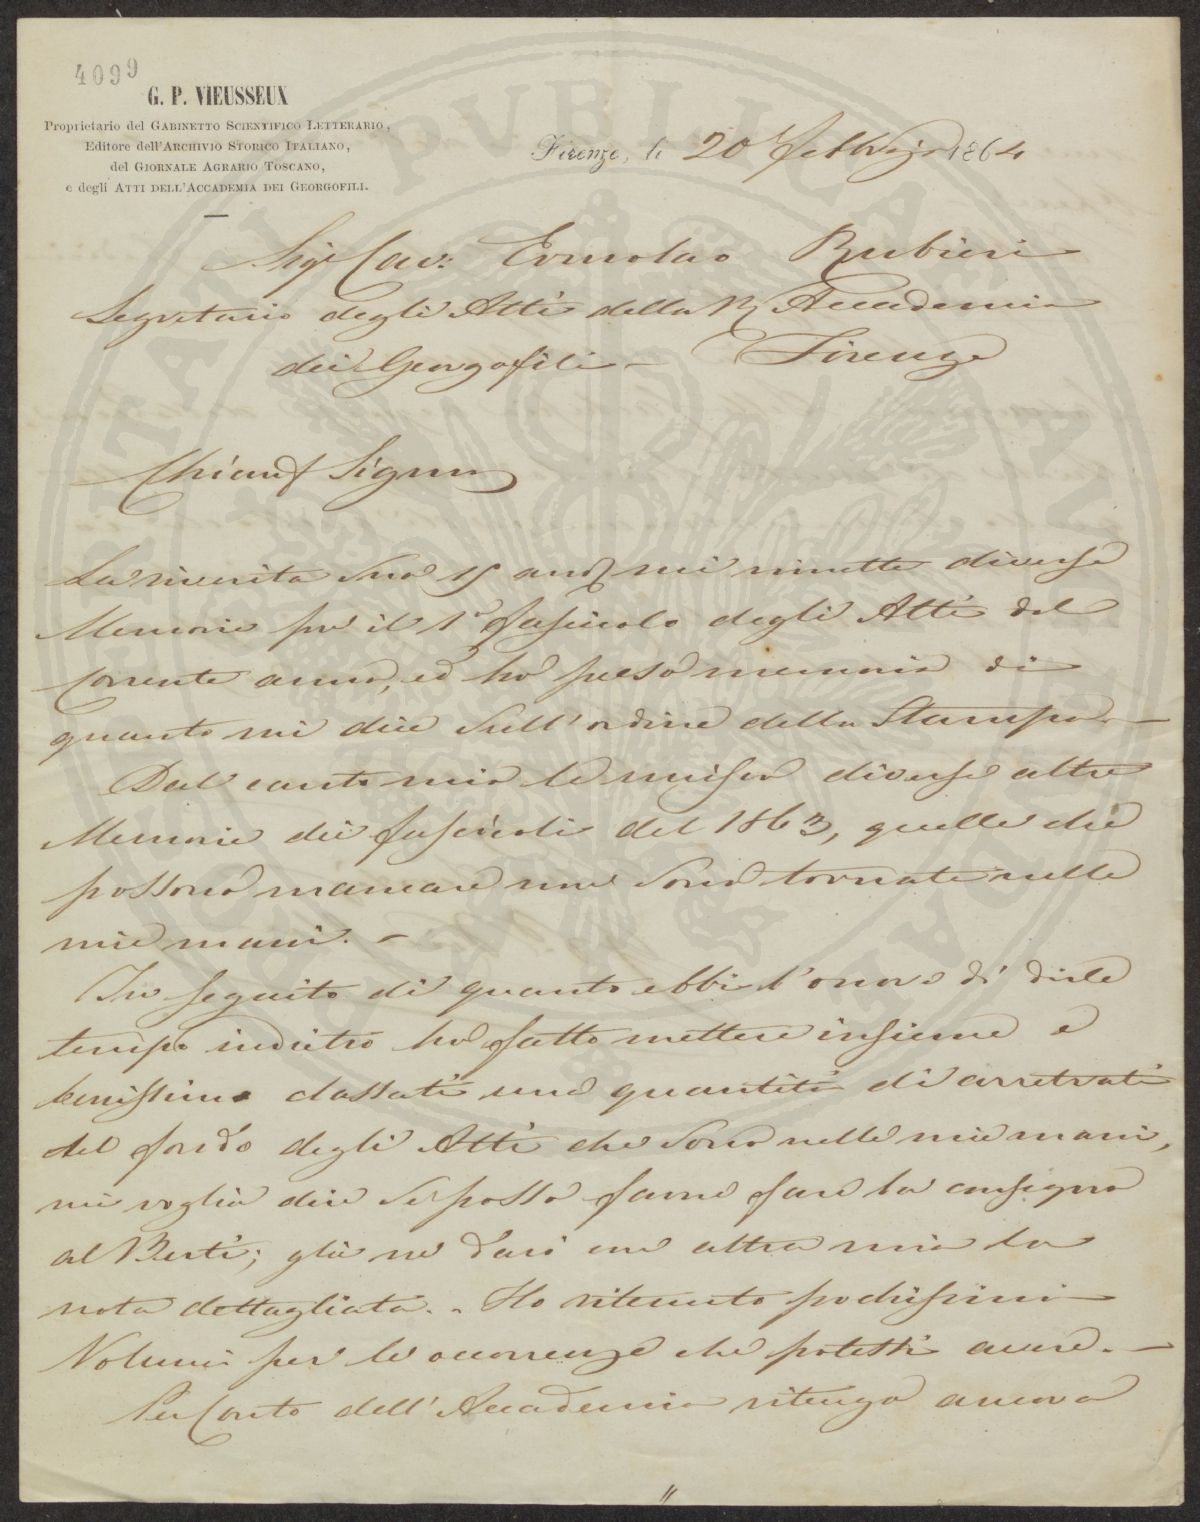 4099
G. P. VIEUSSEUX
Proprietario del GABINETTO SCIENTIFICO LETTERARIO,
Editore dell'ARCHIVIO STORICO ITALIANO,
del GIORNALE AGRARIO TOSCANO,
e degli ATTI DELL'ACCADEMIA DEI GEORGOFILI.
Firenze, li 20 Febbrajo 1864
Sigr Cav: Ermolao Rubieri
Segretario degli Atti della R Accademia
dei Georgofili - Firenze
Chiarmo Signore
La riverita Sua 15 andte mi rimette diverse
Memorie per il 1° fascicolo degli Atti del
Corrente anno, ed ho preso memoria di
quanto mi dice sull'ordine della Stampa. -
Dal canto mio le unisco diverse altre
Memorie dei fascicoli del 1863, quelle che
possono mancare non sono tornate nelle
mie mani. -
In seguito di quanto ebbi l'onore di dirle
tempo indietro ho fatto mettere insieme e
benissimo classati una quantità di arretrati
del fondo degli Atti che sono nelle mie mani,
mi voglia dire se posso farne fare la consegna
al Berti; glie ne darò con altra mia la
nota dettagliata. - Ho ritenuto pochissimi
Volumi per le occorrenze che potetti avere. -
Per Conto dell'Accademia ritengo ancora
PVBLICAE